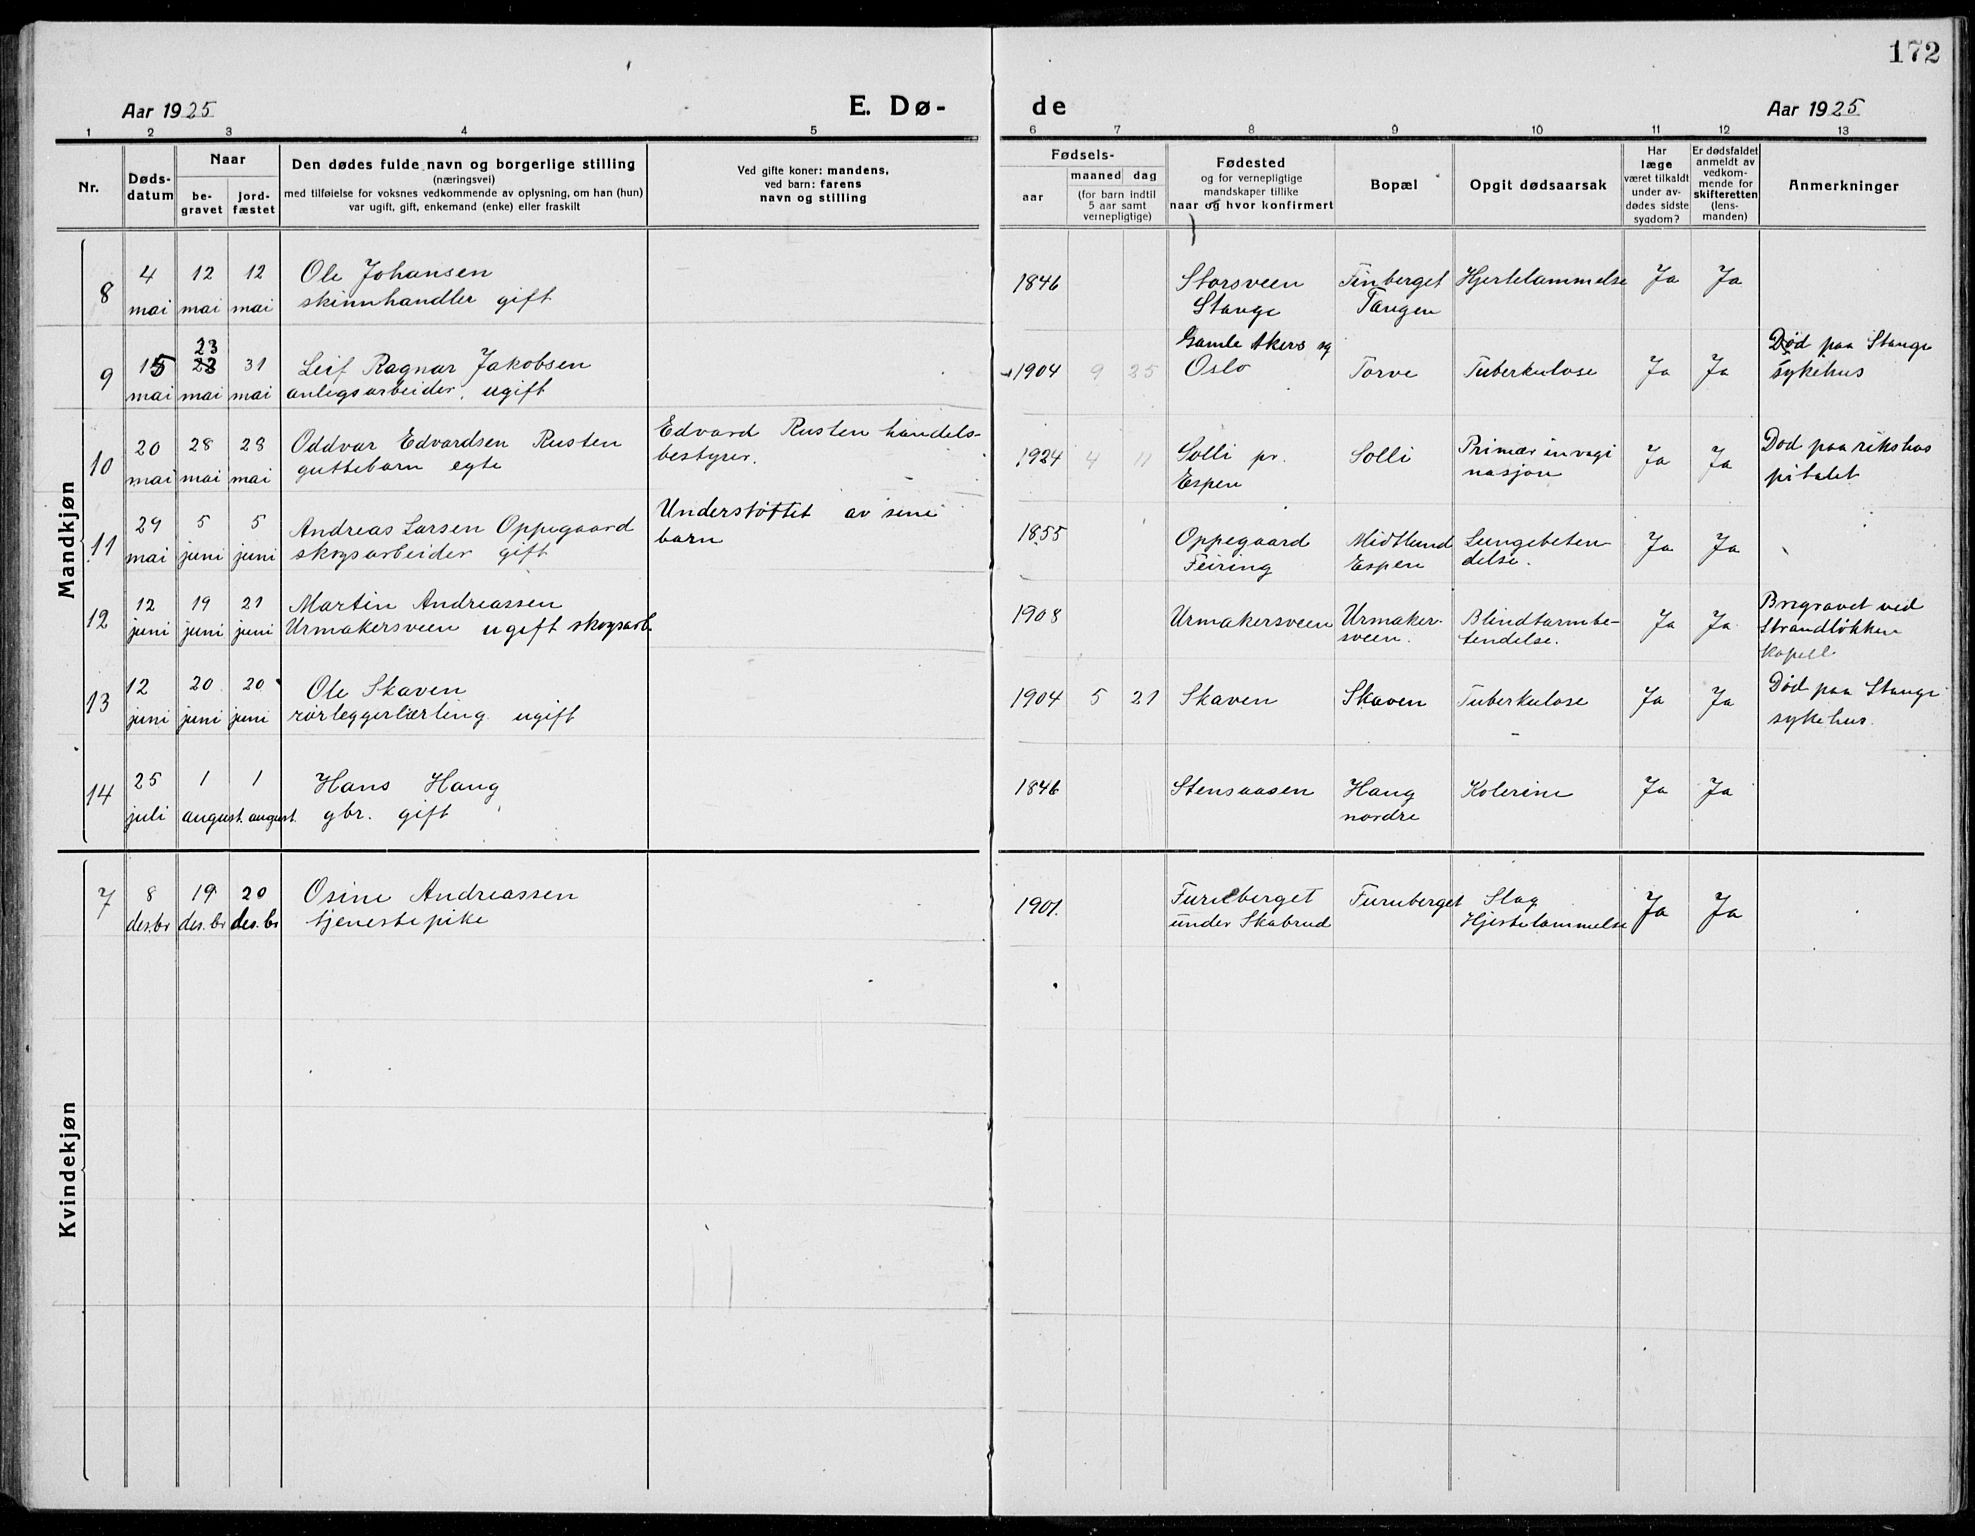 172
Aar 1925
E. Dø-
de
Aar 1925
1 2 3 4 5 6 7 8 9 10 11 12 13
Nr.
Døds-
datum
Naar
be-
gravet
jord-
fæstet
Den dødes fulde navn og borgerlige stilling
(næringsvei)
med tilføielse for voksnes vedkommende av oplysning, om han (hun)
var ugift, gift, enkemand (enke) eller fraskilt
Ved gifte koner: mandens,
ved barn: farens
navn og stilling
Fødsels-
aar
maaned dag
(for barn indtil
5 aar samt
vernepligtige)
Fødested
og for vernepligtige
mandskaper tillike
naar og hvor konfirmert
Bopæl
Opgit dødsaarsak
Har
læge
været tilkaldt
under av-
dødes sidste
sygdom?
Er dødsfaldet
anmeldt av
vedkom-
mende for
skifteretten
(lens-
manden)
Anmerkninger
Mandkjøn
8
4
mai
12
mai
12
mai
Ole Johansen
skinnhandler gift
1846
Storsveen
Stange
Finberget
Tangen
Hjertelammelse
Ja
Ja
9
15
mai
23
23
mai
31
mai
Leif Ragnar Jakobsen
anlegsarbeider, ugift
1904
9
25
Gamle Akers sg
Oslo
Torve
Tuberkulose
Ja
Ja
Død paa Stange
sykehus
10
20
mai
28
mai
28
mai
Oddvar Edvardsen Rusten
guttebarn egte
Edvard Rusten handels-
bestyrer.
1924
4
11
Solli pr.
Espen
Solli
Primær invagi
nasjon
Ja
Ja
Død paa rikshos
pitalet
11
29
mai
5
juni
5
juni
Andreas Larsen Oppegaard
skogsarbeider gift
Understøttet av sine
barn
1855
Oppegaard
Feiring
Midtlund
Espen
Lungebeten-
delse.
Ja
Ja
12
12
juni
19
juni
21
juni
Martin Andreassen
Urmakersveen ugift skogsarb.
1908
Urmakersveen
Urmaker-
sveen.
Blindtarmbe-
tendelse.
Ja
Ja
Begravet ved
Strandløkken
kapell
13
12
juni
20
juni
20
juni
Ole Skaven
rørleggerlærling ugift
1904
5
21
Skaven
Skaven
Tuberkulose
Ja
Ja
Død paa Stange
sykehus.
14
25
juli
1
august.
1
august.
Hans Haug
gbr. gift
1846
Stensaasen
Haug
nordre
Kolerine
Ja
Ja
Kvindekjøn
7
8
des.br
19
des.br
20
des.br
Osine Andreassen
tjenestepike
1901.
Furuberget
under Skabrud
Furuberget
Slag
Hjertelammelse
Ja
Ja